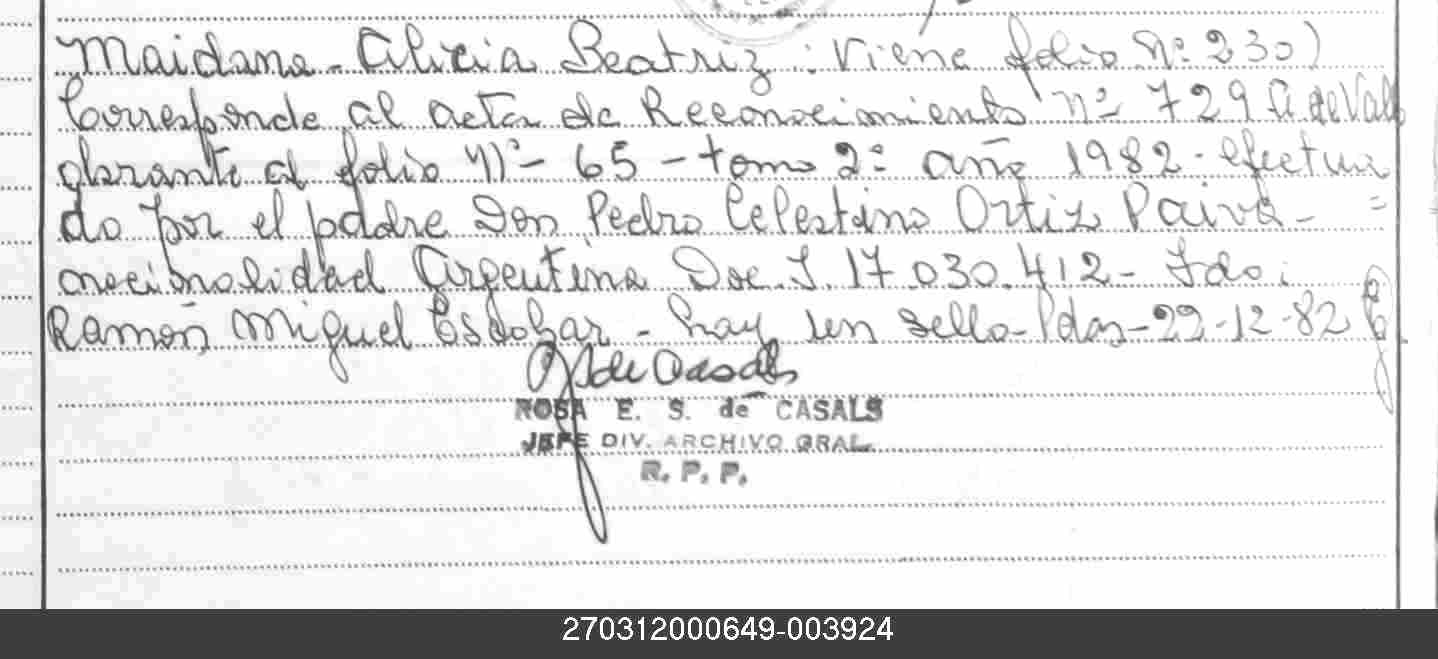 Maidana - Alicia Beatriz : Viene folio Nº 230)
Corresponde al acta de Reconocimiento nº 729 A de Vall
glorante al folio Nº - 65 - tomo 2º año 1982 - efectua
do por el padre Don Pedro Celestino Ortiz Paiva - =
nacionalidad Argentina Doc. I. 17.030.412 - Fdo:
Ramón Miguel Escobar - hay un sello - Pdas - 22-12-82
de Casals
ROSA E. S. de CASALS
JEFE DIV. ARCHIVO GRAL.
R. P. P.
270312000649-003924